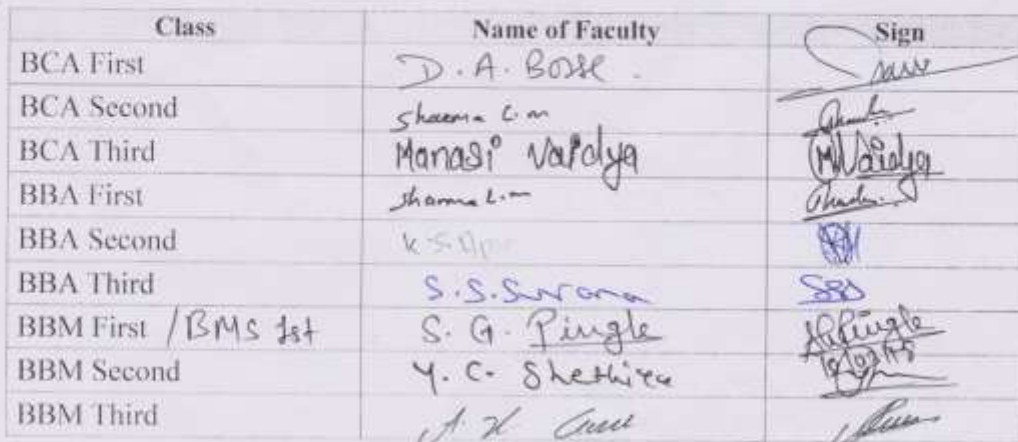 Class Name of Faculty Sign
BCA First D. A. Bosse.
BCA Second Sharma L.m
BCA Third Manasi Vaidya MVaidya
BBA First Sharma L.m
BBA Second K.S.
BBA Third S.S.Surana SSS
BBM First /BMS 1st S. G. Pingle Pingle
BBM Second Y. C. Shethiya
BBM Third